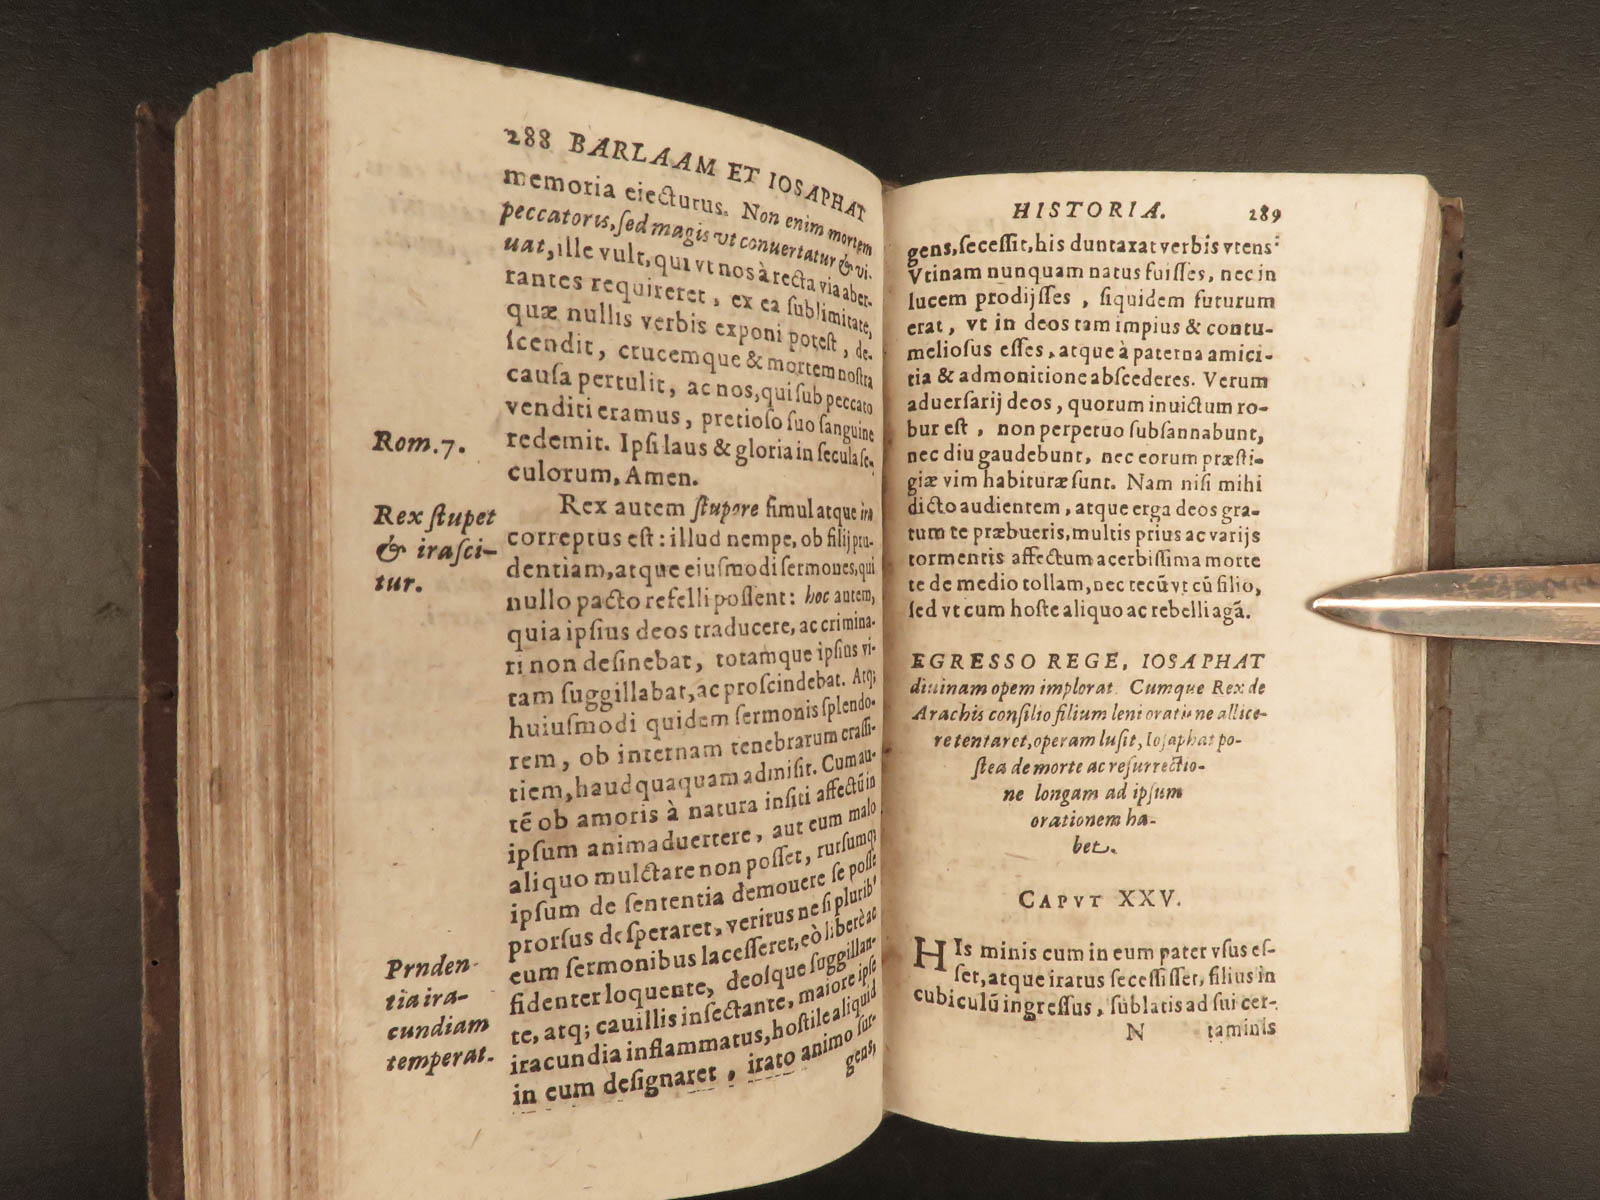 288 BARLAAM ET IOSAPHAT
memoria eiecturus. Non enim mortem
peccatoris, ſed magis vt conuertatur & vi-
uat, ille vult, qui vt nos à recta via aber-
rantes requireret, ex ea ſublimitate,
quæ nullis verbis exponi poteſt, de-
ſcendit, crucemque & mortem noſtra
cauſa pertulit, ac nos, qui ſub peccato
venditi eramus, pretioſo ſuo ſanguine
Rom. 7.
redemit. Ipſi laus & gloria in ſecula ſe-
culorum, Amen.
Rex ſtupet
& iraſci-
tur.
Rex autem ſtupore ſimul atque ira
correptus eſt: illud nempe, ob filij pru-
dentiam, atque eiuſmodi ſermones, qui
nullo pacto refelli poſſent: hoc autem,
quia ipſius deos traducere, ac crimina-
ri non deſinebat, totamque ipſius vi-
tam ſuggillabat, ac proſcindebat. Atq;
huiuſmodi quidem ſermonis ſplendo-
rem, ob internam tenebrarum craſſi-
tiem, haudquaquam admiſit. Cum au-
tē ob amoris à natura inſiti affectū in
ipſum animaduertere, aut eum malo
aliquo mulctare non poſſet, rurſumq;
ipſum de ſententia demouere ſe poſſe
prorſus deſperaret, veritus ne ſi plurib'
Prnden-
tia ira-
cundiam
temperat.
eum ſermonibus laceſſeret, eò liberè ac
fidenter loquente, deoſque ſuggillan-
te, atq; cauillis inſectante, maiore ipſe
iracundia inflammatus, hoſtile aliquid
in eum deſignaret, irato animo ſur-
gens,
HISTORIA. 289
gens, ſeceſſit, his duntaxat verbis vtens:
Vtinam nunquam natus fuiſſes, nec in
lucem prodijſſes, ſiquidem futurum
erat, vt in deos tam impius & contu-
melioſus eſſes, atque à paterna amici-
tia & admonitione abſcederes. Verum
aduerſarij deos, quorum inuictum ro-
bur eſt, non perpetuo ſubſannabunt,
nec diu gaudebunt, nec eorum præſti-
giæ vim habituræ ſunt. Nam niſi mihi
dicto audientem, atque erga deos gra-
tum te præbueris, multis prius ac varijs
tormentis affectum acerbiſſima morte
te de medio tollam, nec tecū vt cū filio,
ſed vt cum hoſte aliquo ac rebelli agā.
EGRESSO REGE, IOSAPHAT
diuinam opem implorat. Cumque Rex de
Arachis conſilio filium leni oratione allice-
re tentaret, operam luſit, Ioſaphat po-
ſtea de morte ac reſurrectio-
ne longam ad ipſum
orationem ha-
bet.
CAPVT XXV.
HIs minis cum in eum pater vſus eſ-
ſet, atque iratus ſeceſſiſſet, filius in
cubiculū ingreſſus, ſublatis ad ſui cer-
N taminis